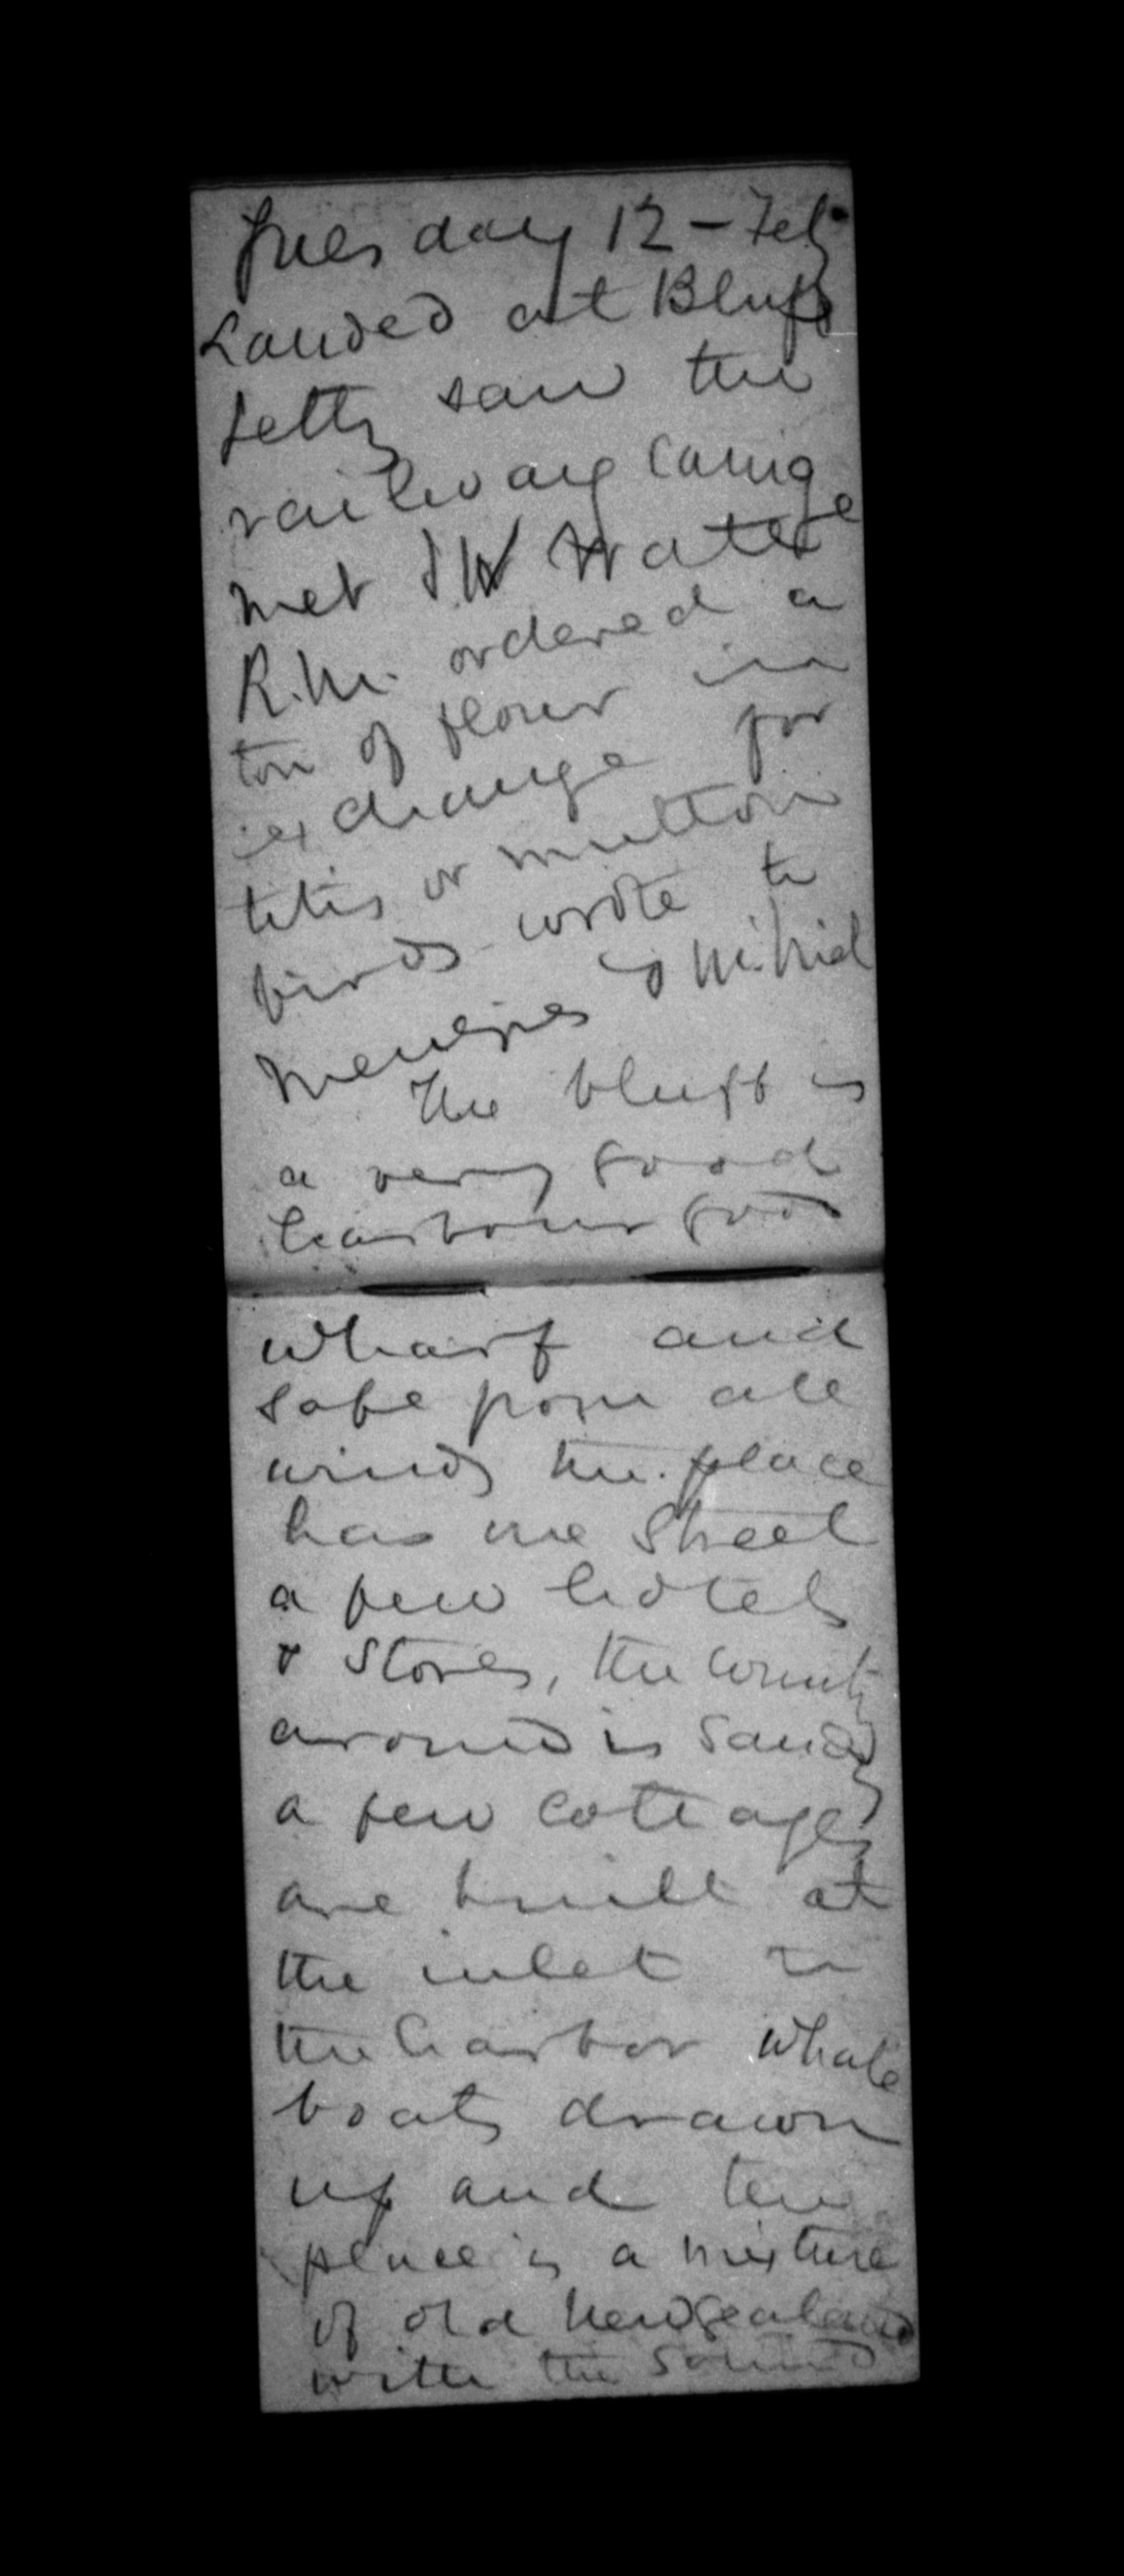 Tuesday 12 - Feby
Landed at Bluff
Jetty saw the
railway carriage
met
R.M. ordered a
ton of flour in
exchange for
titis or mutton
birds wrote to
Menzies &
The bluff is
a very good
harbour good
wharf and
safe from all
winds the place
has one Street
a few hotels
& Stores, the county
around is Sandy
a few cottages
are built at
the inlet to
the harbor whale
boats drawn
up and the
place is a mixture
of old New Zealand
with the Sound